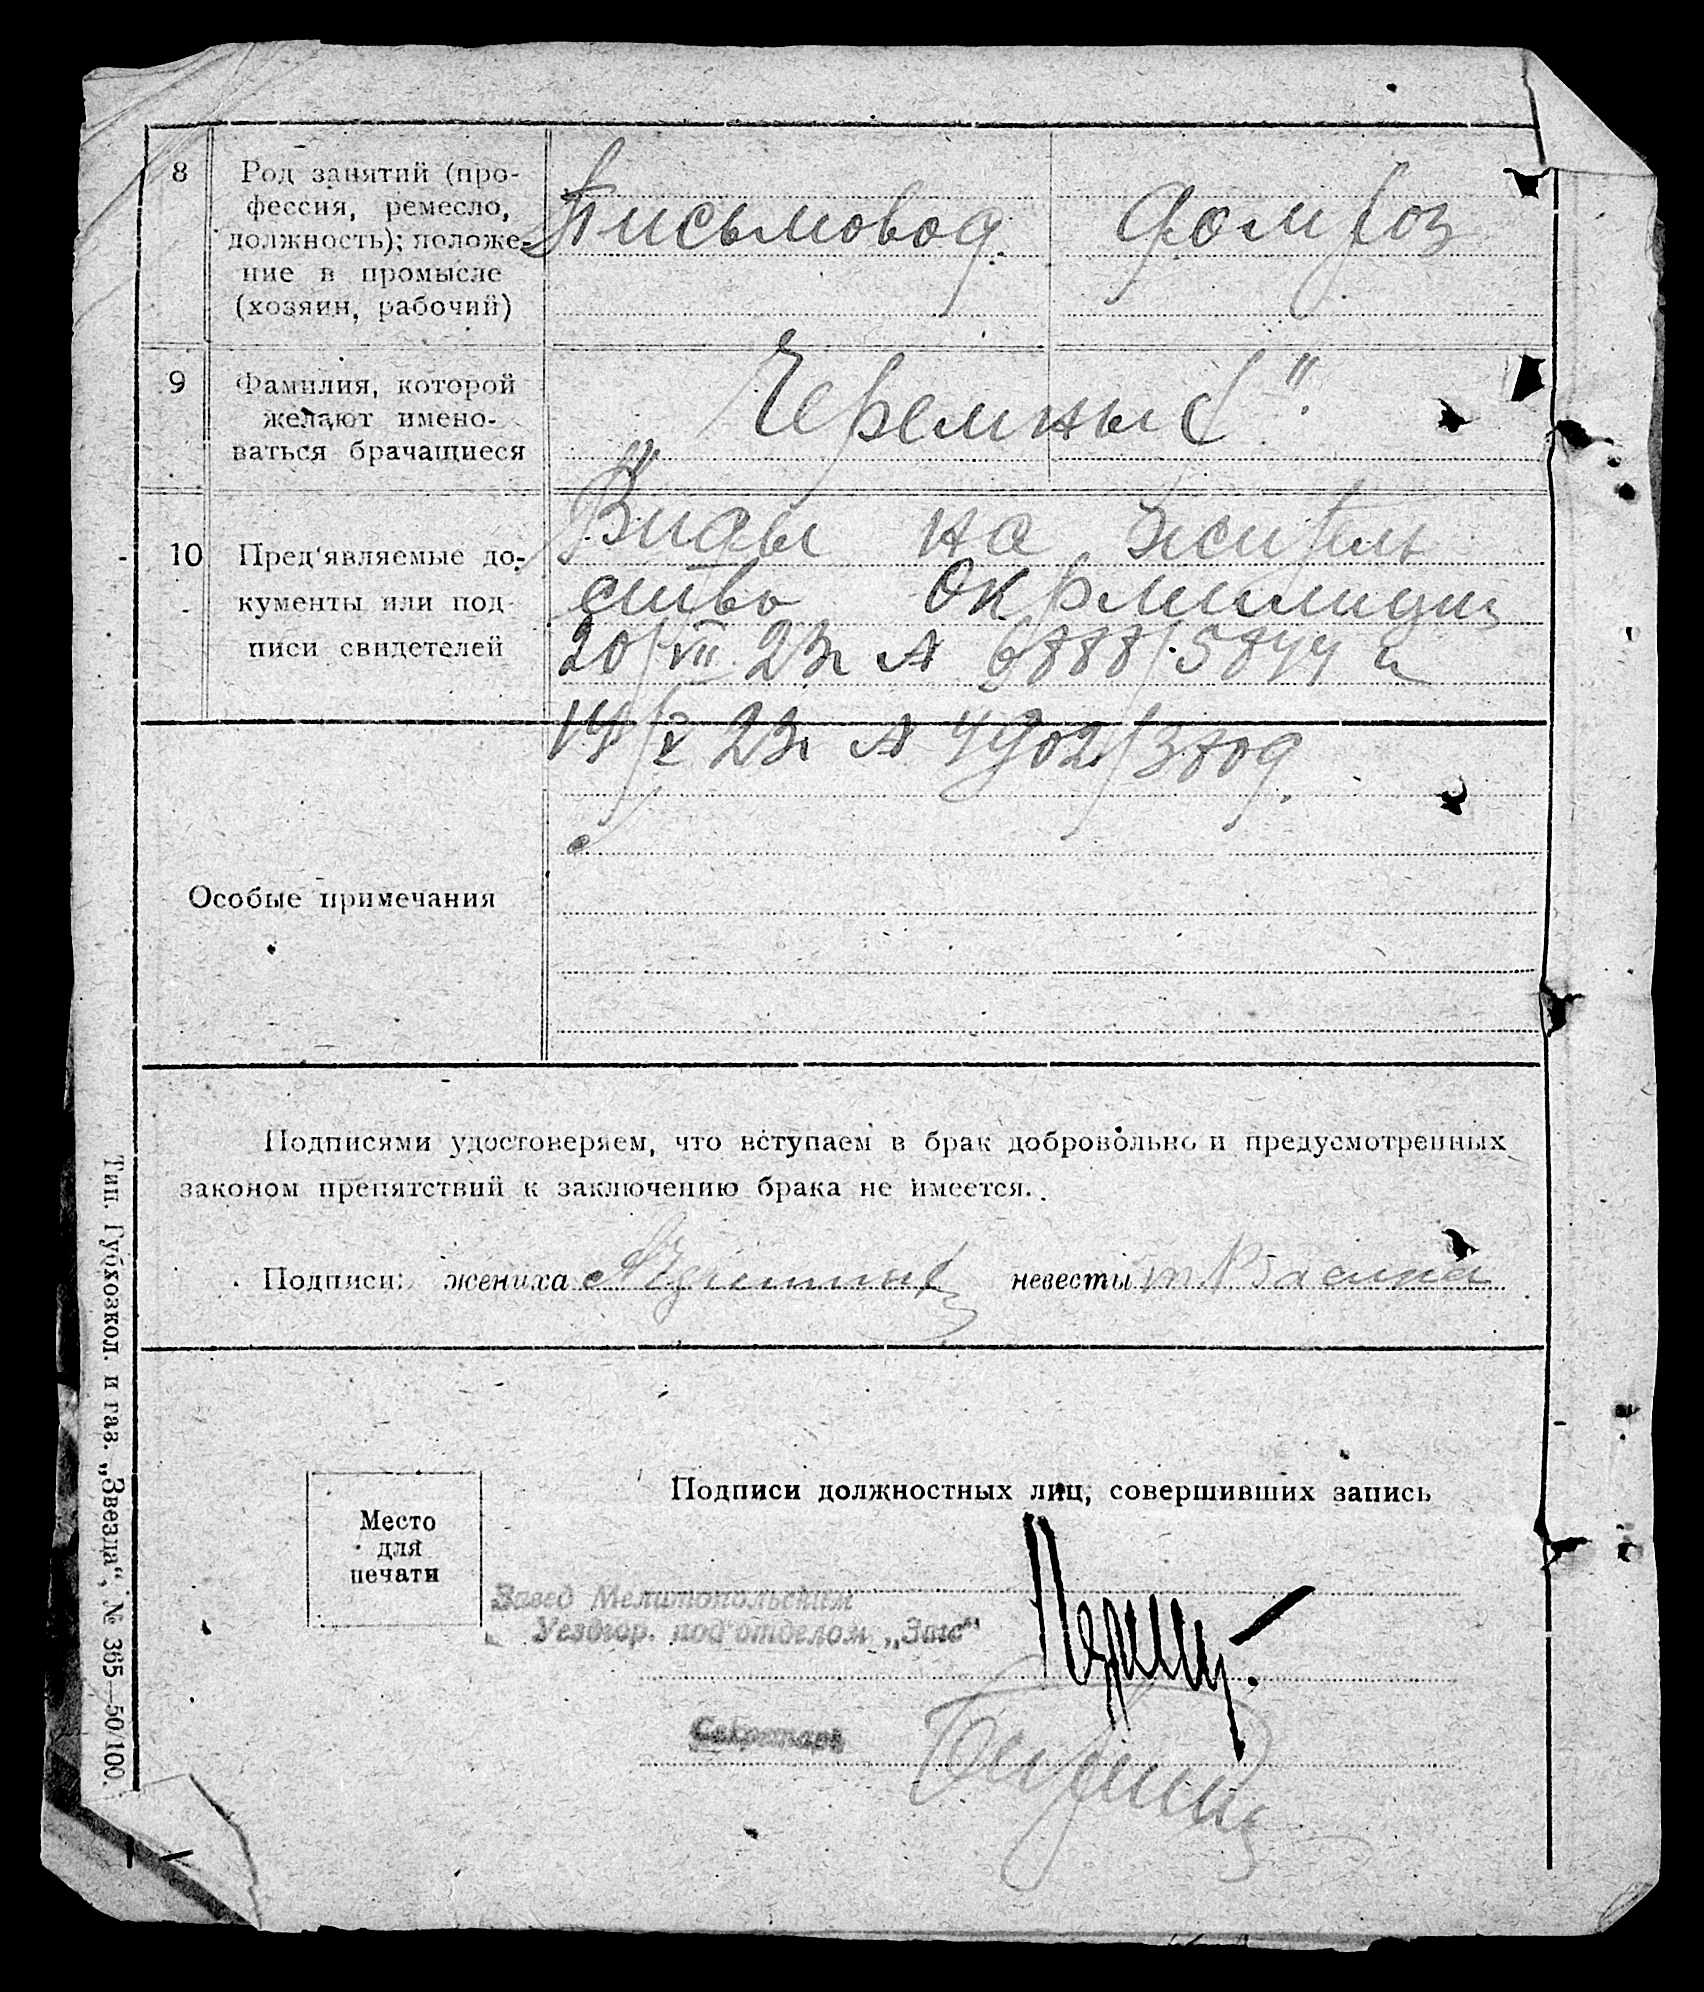 8
Род занятий (про-
фессия, ремесло,
должность); положе-
ние в промысле
(хозяин, рабочий)
Письмовод.
домхоз
9
Фамилия, которой
желают имено-
ваться брачащиеся
„Черемных".
10
Пред'являемые до-
кументы или под-
писи свидетелей
Виды на житель
ство Окрмилиции
20/VII 23г № 6888/5844 и
14/V 23г № 4902/3809.
Особые примечания
Подписями удостоверяем, что вступаем в брак добровольно и предусмотренных
законом препятствий к заключению брака не имеется.
Подписи: жениха невесты
Подписи должностных лиц, совершивших запись
Место
для
печати
Завед Мелитопольским
Уездгор. под'отделом „Загс"
Секретарь
Тип. Губхозкол. и газ. „Звезда", № 365—50/100.